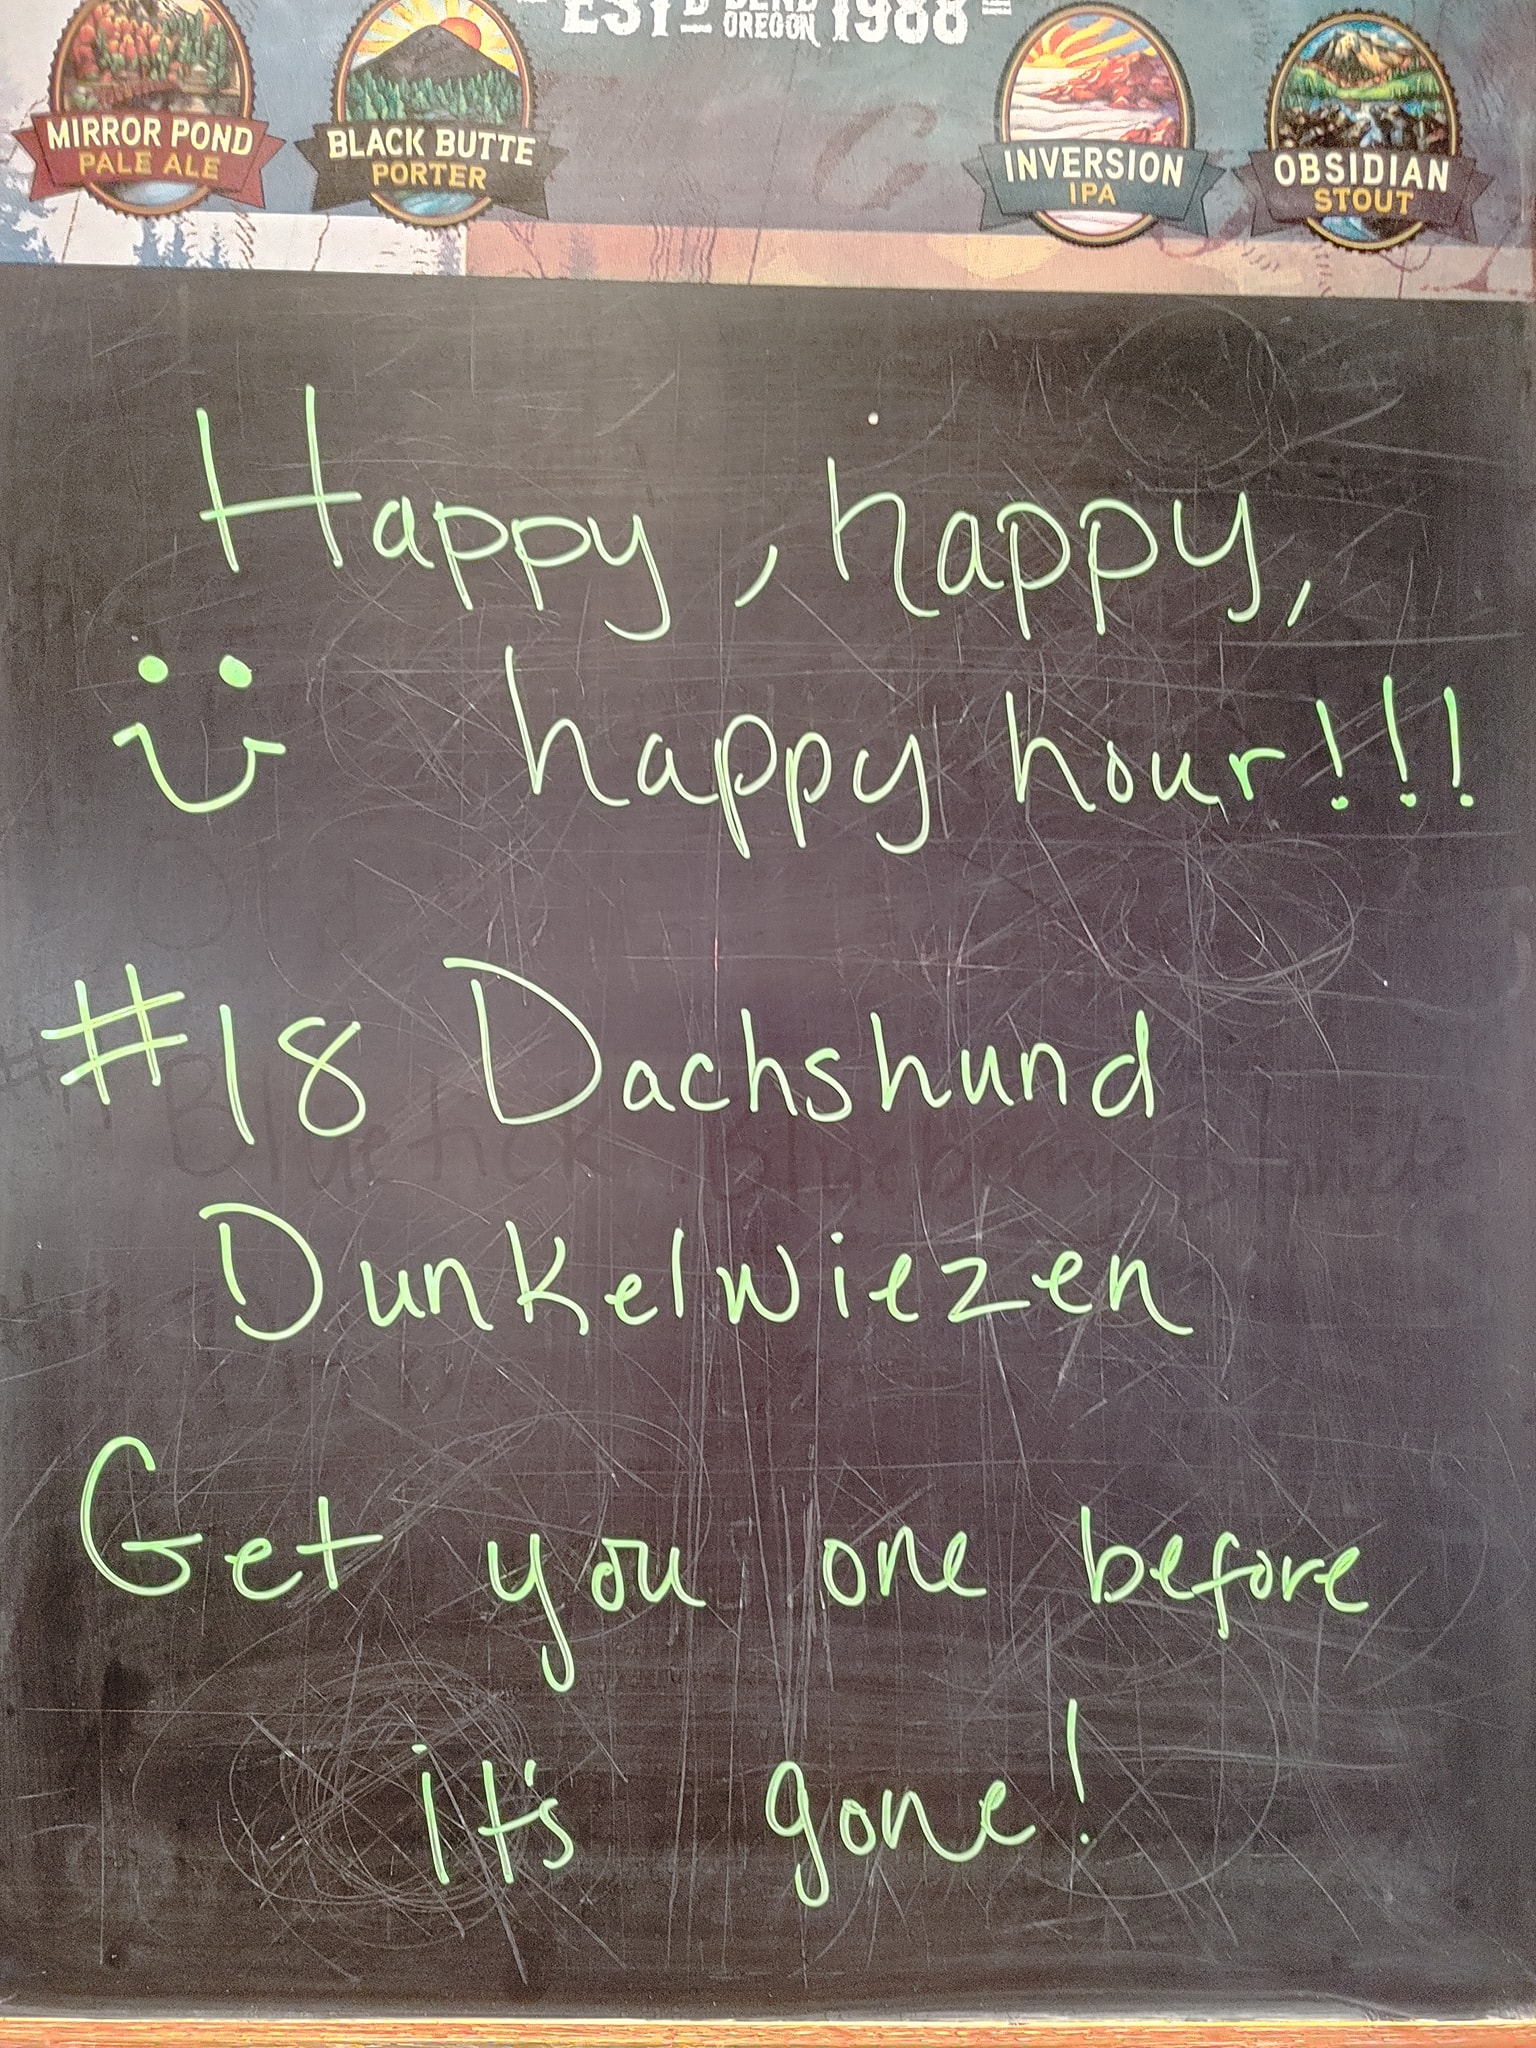 ESTD BEND OREGON 1988
MIRROR POND
PALE ALE
BLACK BUTTE
PORTER
INVERSION
IPA
OBSIDIAN
STOUT
Happy, happy,
happy hour!!!
#18 Dachshund
Dunkelwiezen
Get you one before
it's gone!